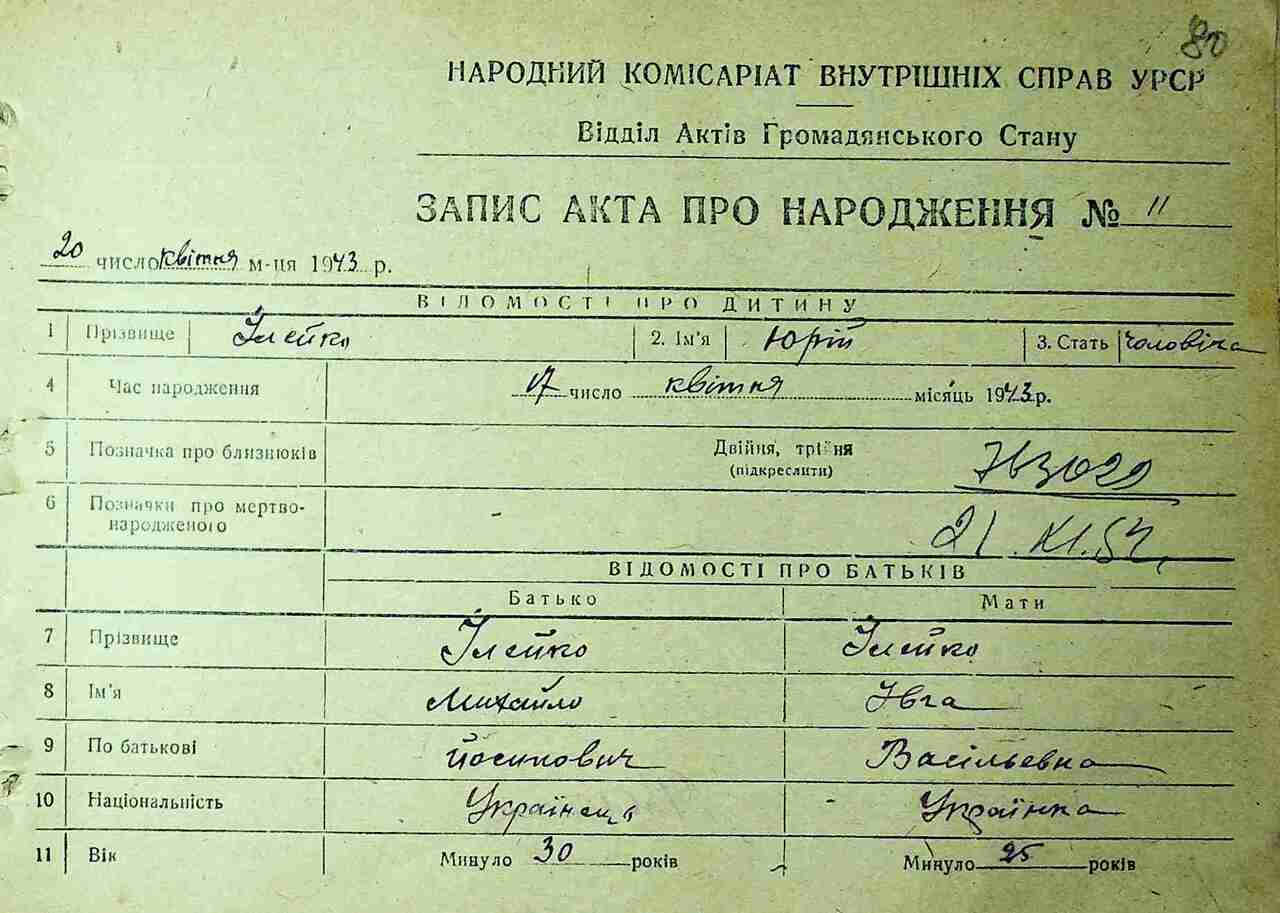 80
НАРОДНИЙ КОМІСАРІАТ ВНУТРІШНІХ СПРАВ УРСР
Відділ Актів Громадянського Стану
ЗАПИС АКТА ПРО НАРОДЖЕННЯ № 11
20 число квітня м-ця 1943 р.
ВІДОМОСТІ ПРО ДИТИНУ
1 Прізвище Ілейко 2. Ім'я Юрій 3. Стать чоловіча
4 Час народження 17 число квітня місяць 1943 р.
5 Позначка про близнюків Двійня, трійня
(підкреслити)
6 Позначки про мертво-
народженого -
21.XI.54.
ВІДОМОСТІ ПРО БАТЬКІВ
Батько Мати
7 Прізвище Ілейко Ілейко
8 Ім'я Михайло Ївга
9 По батькові Йосипович Васільевна
10 Національність Українець Українка
11 Вік Минуло 30 років Минуло 25 років